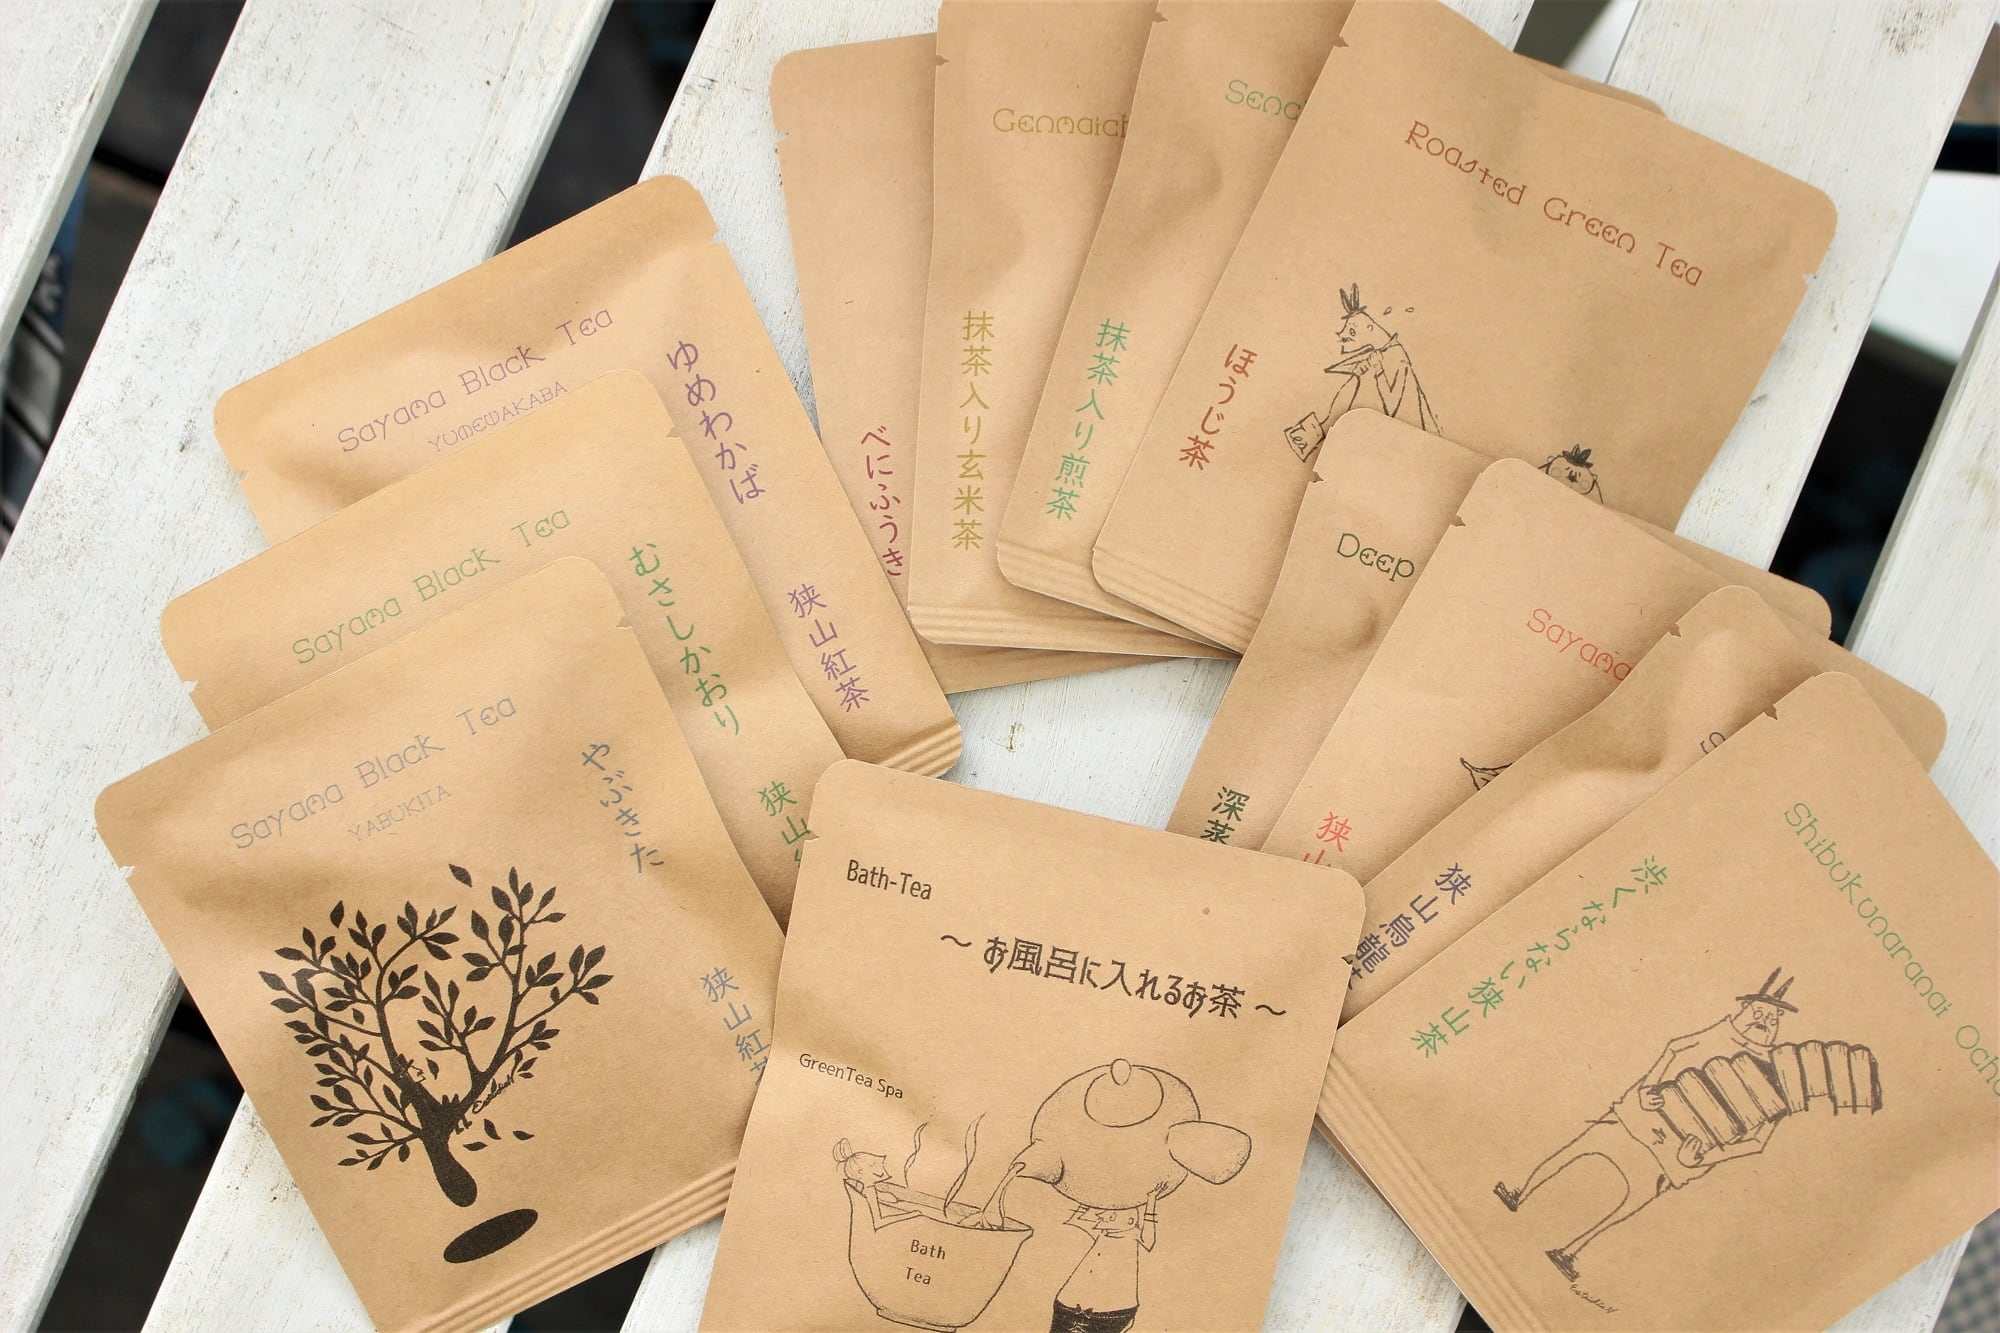 Sayama Black Tea
YUMEWAKABA
ゆめわかば
狭山紅茶
Sayama Black Tea
むさしかおり
狭山
Sayama Black Tea
YABUKITA
やぶきた
狭山紅茶
べにふうき
Genmaich
抹茶入り玄米茶
Senc
抹茶入り煎茶
Roasted Green Tea
ほうじ茶
Tea
Deep
深蒸
Sayama
狭山
S
狭山烏龍茶
Shibukunaranai Ocha
渋くならない狭山茶
Bath-Tea
～ お風呂に入れるお茶 ～
GreenTea Spa
Bath
Tea